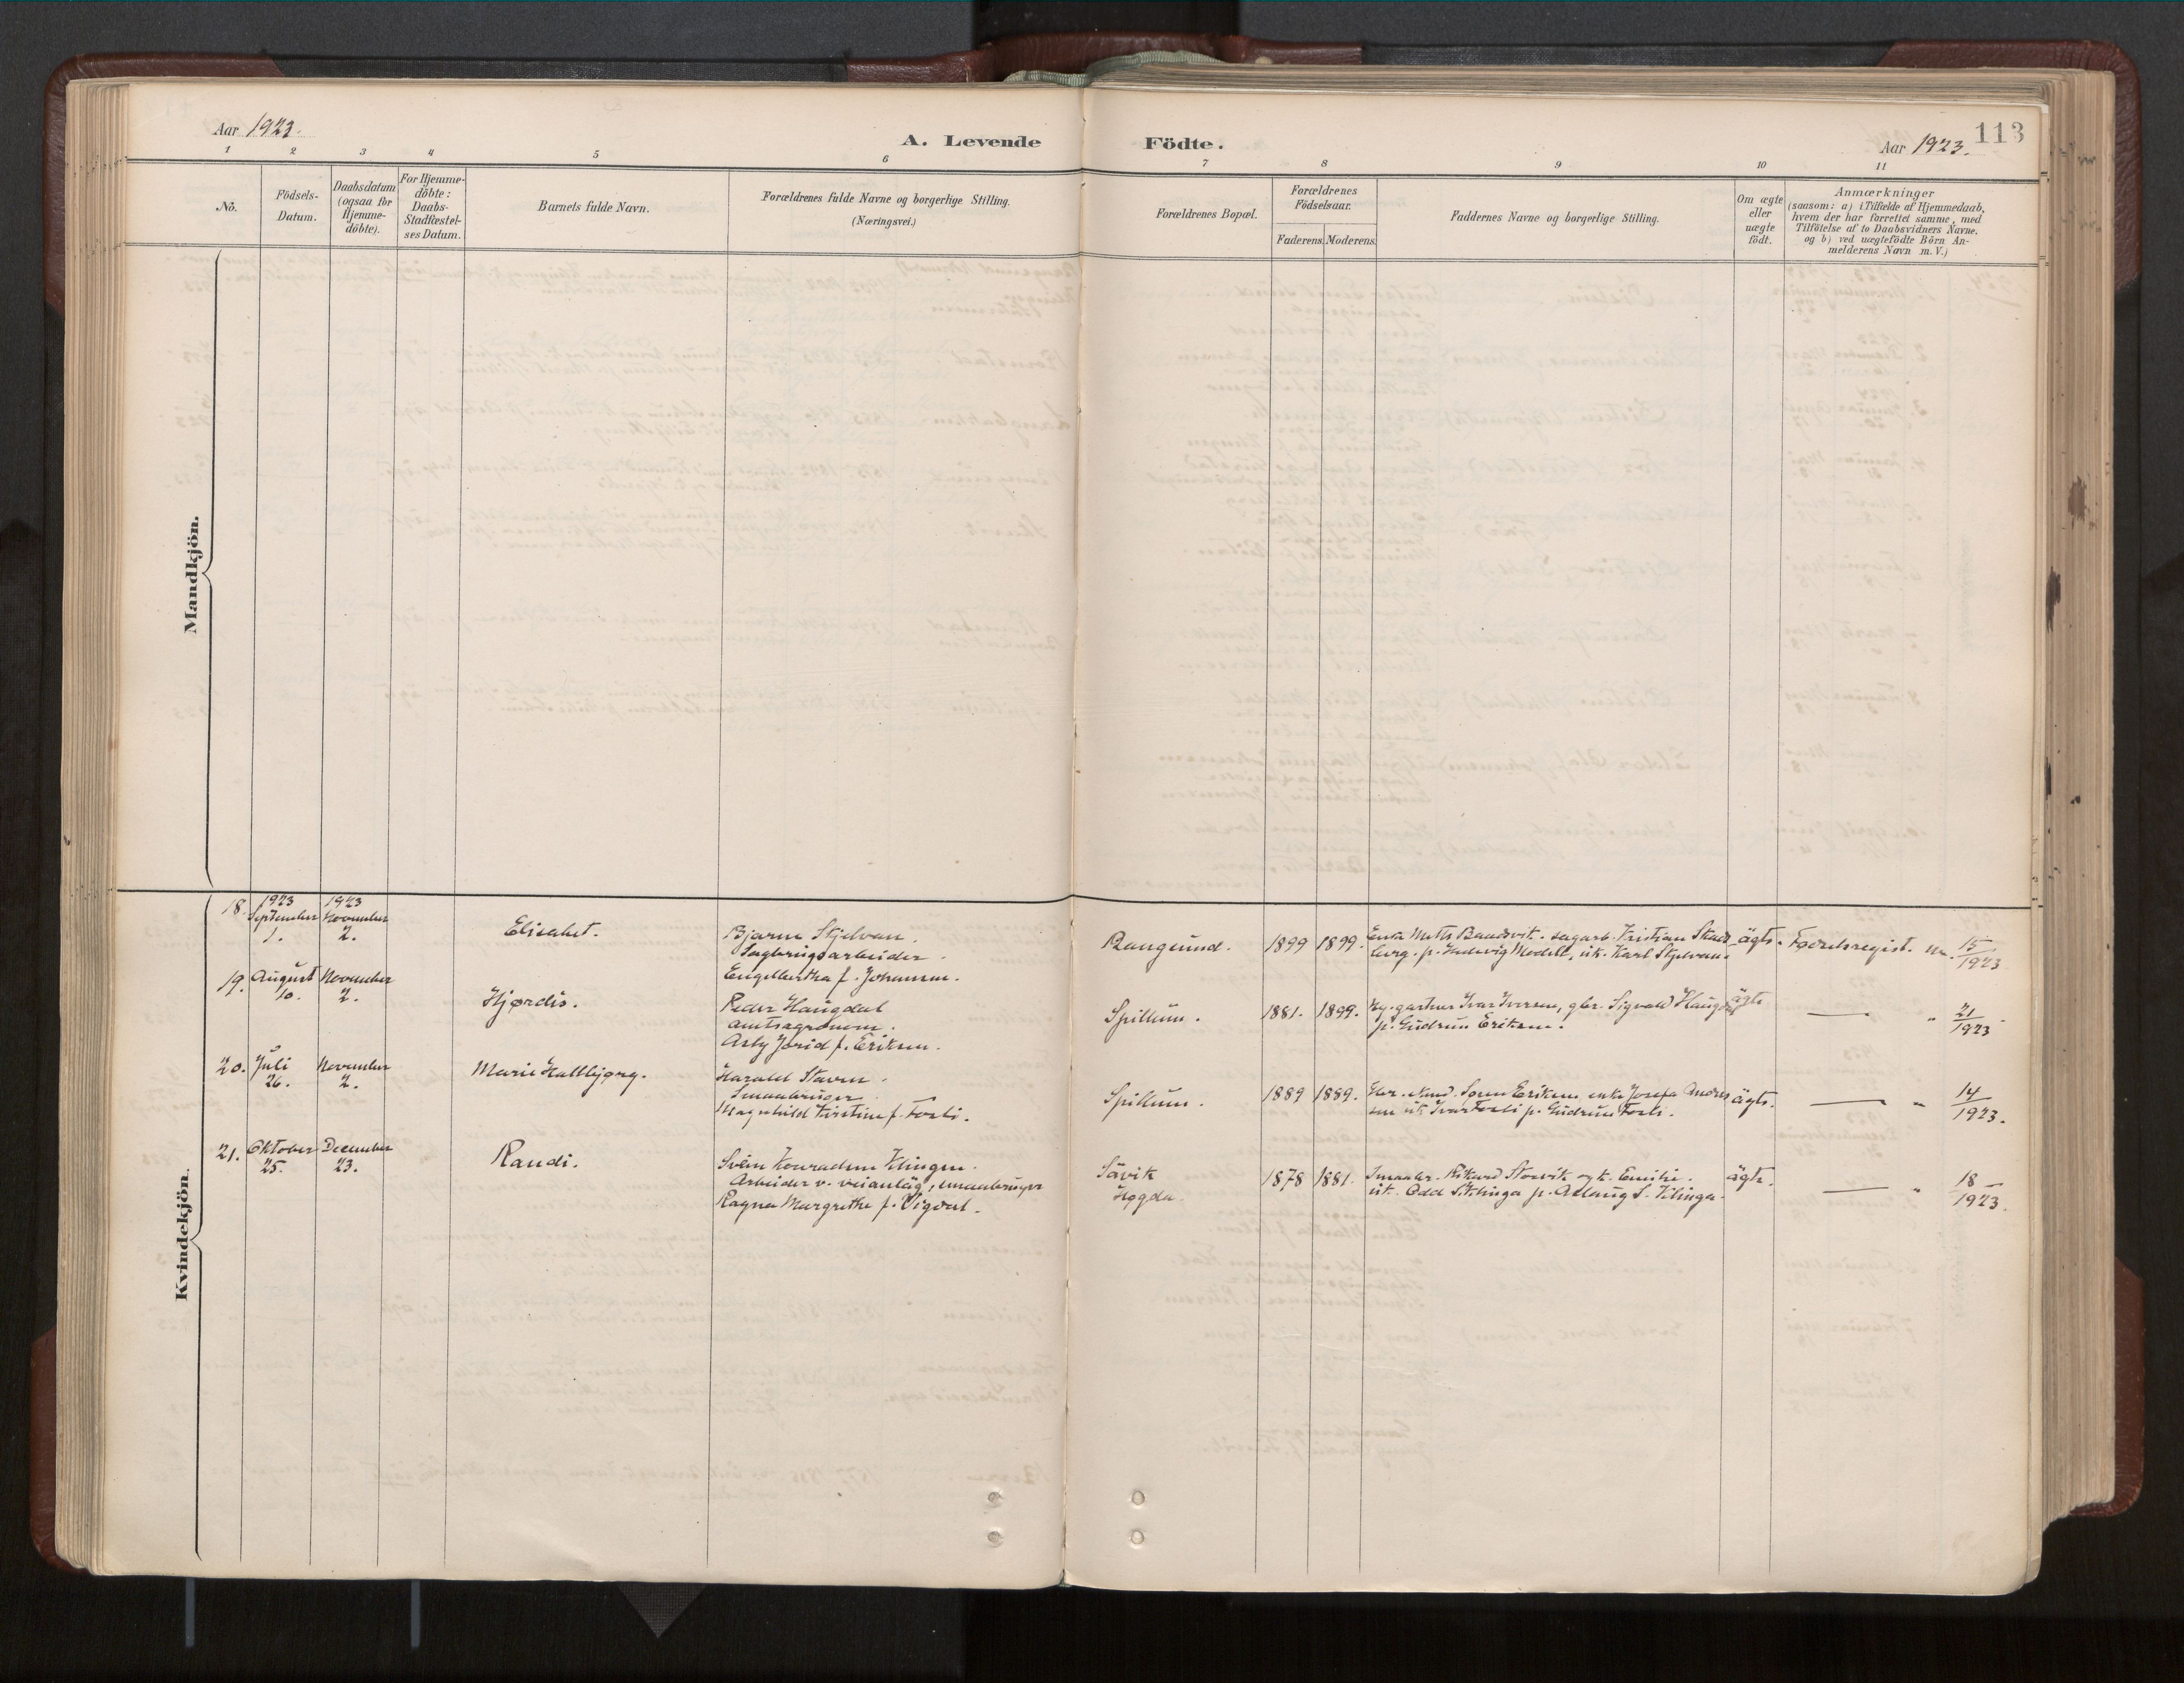 Aar 1923.
A. Levende Födte.
Aar 1923.
113
1 2 3 4 5 6 7 8 9 10 11
No.
Födsels-
Datum.
Daabsdatum
(ogsaa for
Hjemme-
döbte).
For Hjemme-
döbte:
Daabs-
Stadfæstel-
ses Datum.
Barnets fulde Navn.
Forældrenes fulde Navne og borgerlige Stilling.
(Næringsvei.)
Forældrenes Bopæl.
Forældrenes
Födselsaar.
Faderens. Moderens.
Faddernes Navne og borgerlige Stilling.
Om ægte
eller
uægte
födt.
Anmærkninger
(saasom: a) i Tilfælde af Hjemmedaab,
hvem der har forrettet samme, med
Tilföielse af to Daabsvidners Navne,
og b) ved uægtefödte Börn An-
melderens Navn m. V.)
Mandkjön.
Kvindekjön.
18. 1923 September 1.
1923 November 2.
Elisabet.
Bjarne Skjelvan.
Sagbrugsarbeider.
Engelbertha f. Johansen.
Rangsund.
1899 1899.
Enke Meths Baadsvik. sagarb. Kristian Skads
berg. p. Hedevig Modell, uk. Karl Skjelvan.
ägte.
Fødselsregist. nr. 15/1923
19. August 10.
November 2.
Hjørdis.
Peder Haugdal
amtsagronom.
Asly Jorid f. Eriksen.
Spillum.
1881. 1899.
Hg. gartner Ivar Iversen, gbr. Sigvald Haugdal
p. Gudrun Eriksen.
ägte
— " 21/1923
20. Juli 26.
November 2.
Marie Hallbjørg.
Harald Stavrn.
Smaabruger
Magnhild Kirstine f. Fosli.
Spillum.
1889 1889.
Søren Eriksen enke Josefa Andres
sen uk Ivar Fosli p. Gudrun Fosli.
ägte.
— " 14/1923.
21. Oktober 25.
December 23.
Randi.
Svein Konradsen Klingen.
Arbeider v. veianläg, smaabruger
Ragna Margrethe f. Vigdal.
Sävik
Høgda.
1878 1881.
Smaabr. Rikard Storvik og k. Emilie.
uk. Odd S. Klinga p. Aslaug S. Klinga.
ägte.
— " 18/1923.